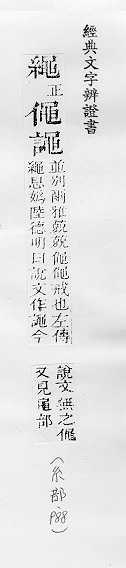 經典文字辨證書
繩正僶譝
並別爾雅兢兢僶僶戒也左傳
繩息嬀陸德明曰說文作譝今
說文無之僶
又見黽部
(糸部.P88)